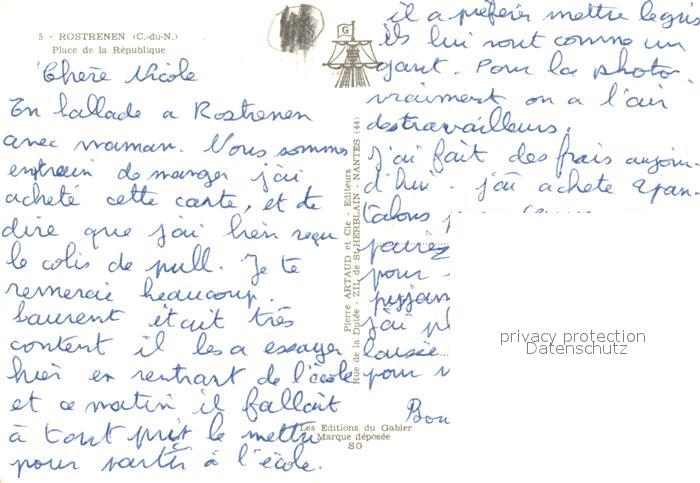 5 - ROSTRENEN (C.-du-N.)
Place de la République
Chère Nicole
En ballade a Rostrenen
avec maman. Nous sommes
entrain de manger j'ai
acheté cette carte, et te
dire que j'ai bien reçu
le colis de pull. Je te
remerci beaucoup.
Laurent était très
content il les a essayer
hier en rentrant de l'école
et ce matin il fallait
à tout prix le mettre
pour partir à l'école.
il a préférer mettre le gris
ils lui vont comme un
gant. Pour la photo
vraiment on a l'air
des travailleurs.
J'ai fait des frais aujour-
d'hui. j'ai acheté 2 pan-
talons
pour
pyjam
j'ai
pour
Bon
G
Pierre ARTAUD et Cie - Editeurs
Rue de la Dutée - ZIL de St HERBLAIN - NANTES (44)
Les Editions du Gabier
Marque déposée
SO
privacy protection
Datenschutz